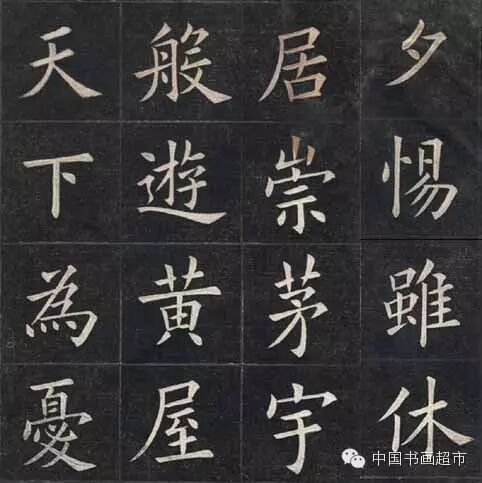 夕惕雖休
居崇茅宇
般遊黃屋
天下為憂
中国书画超市